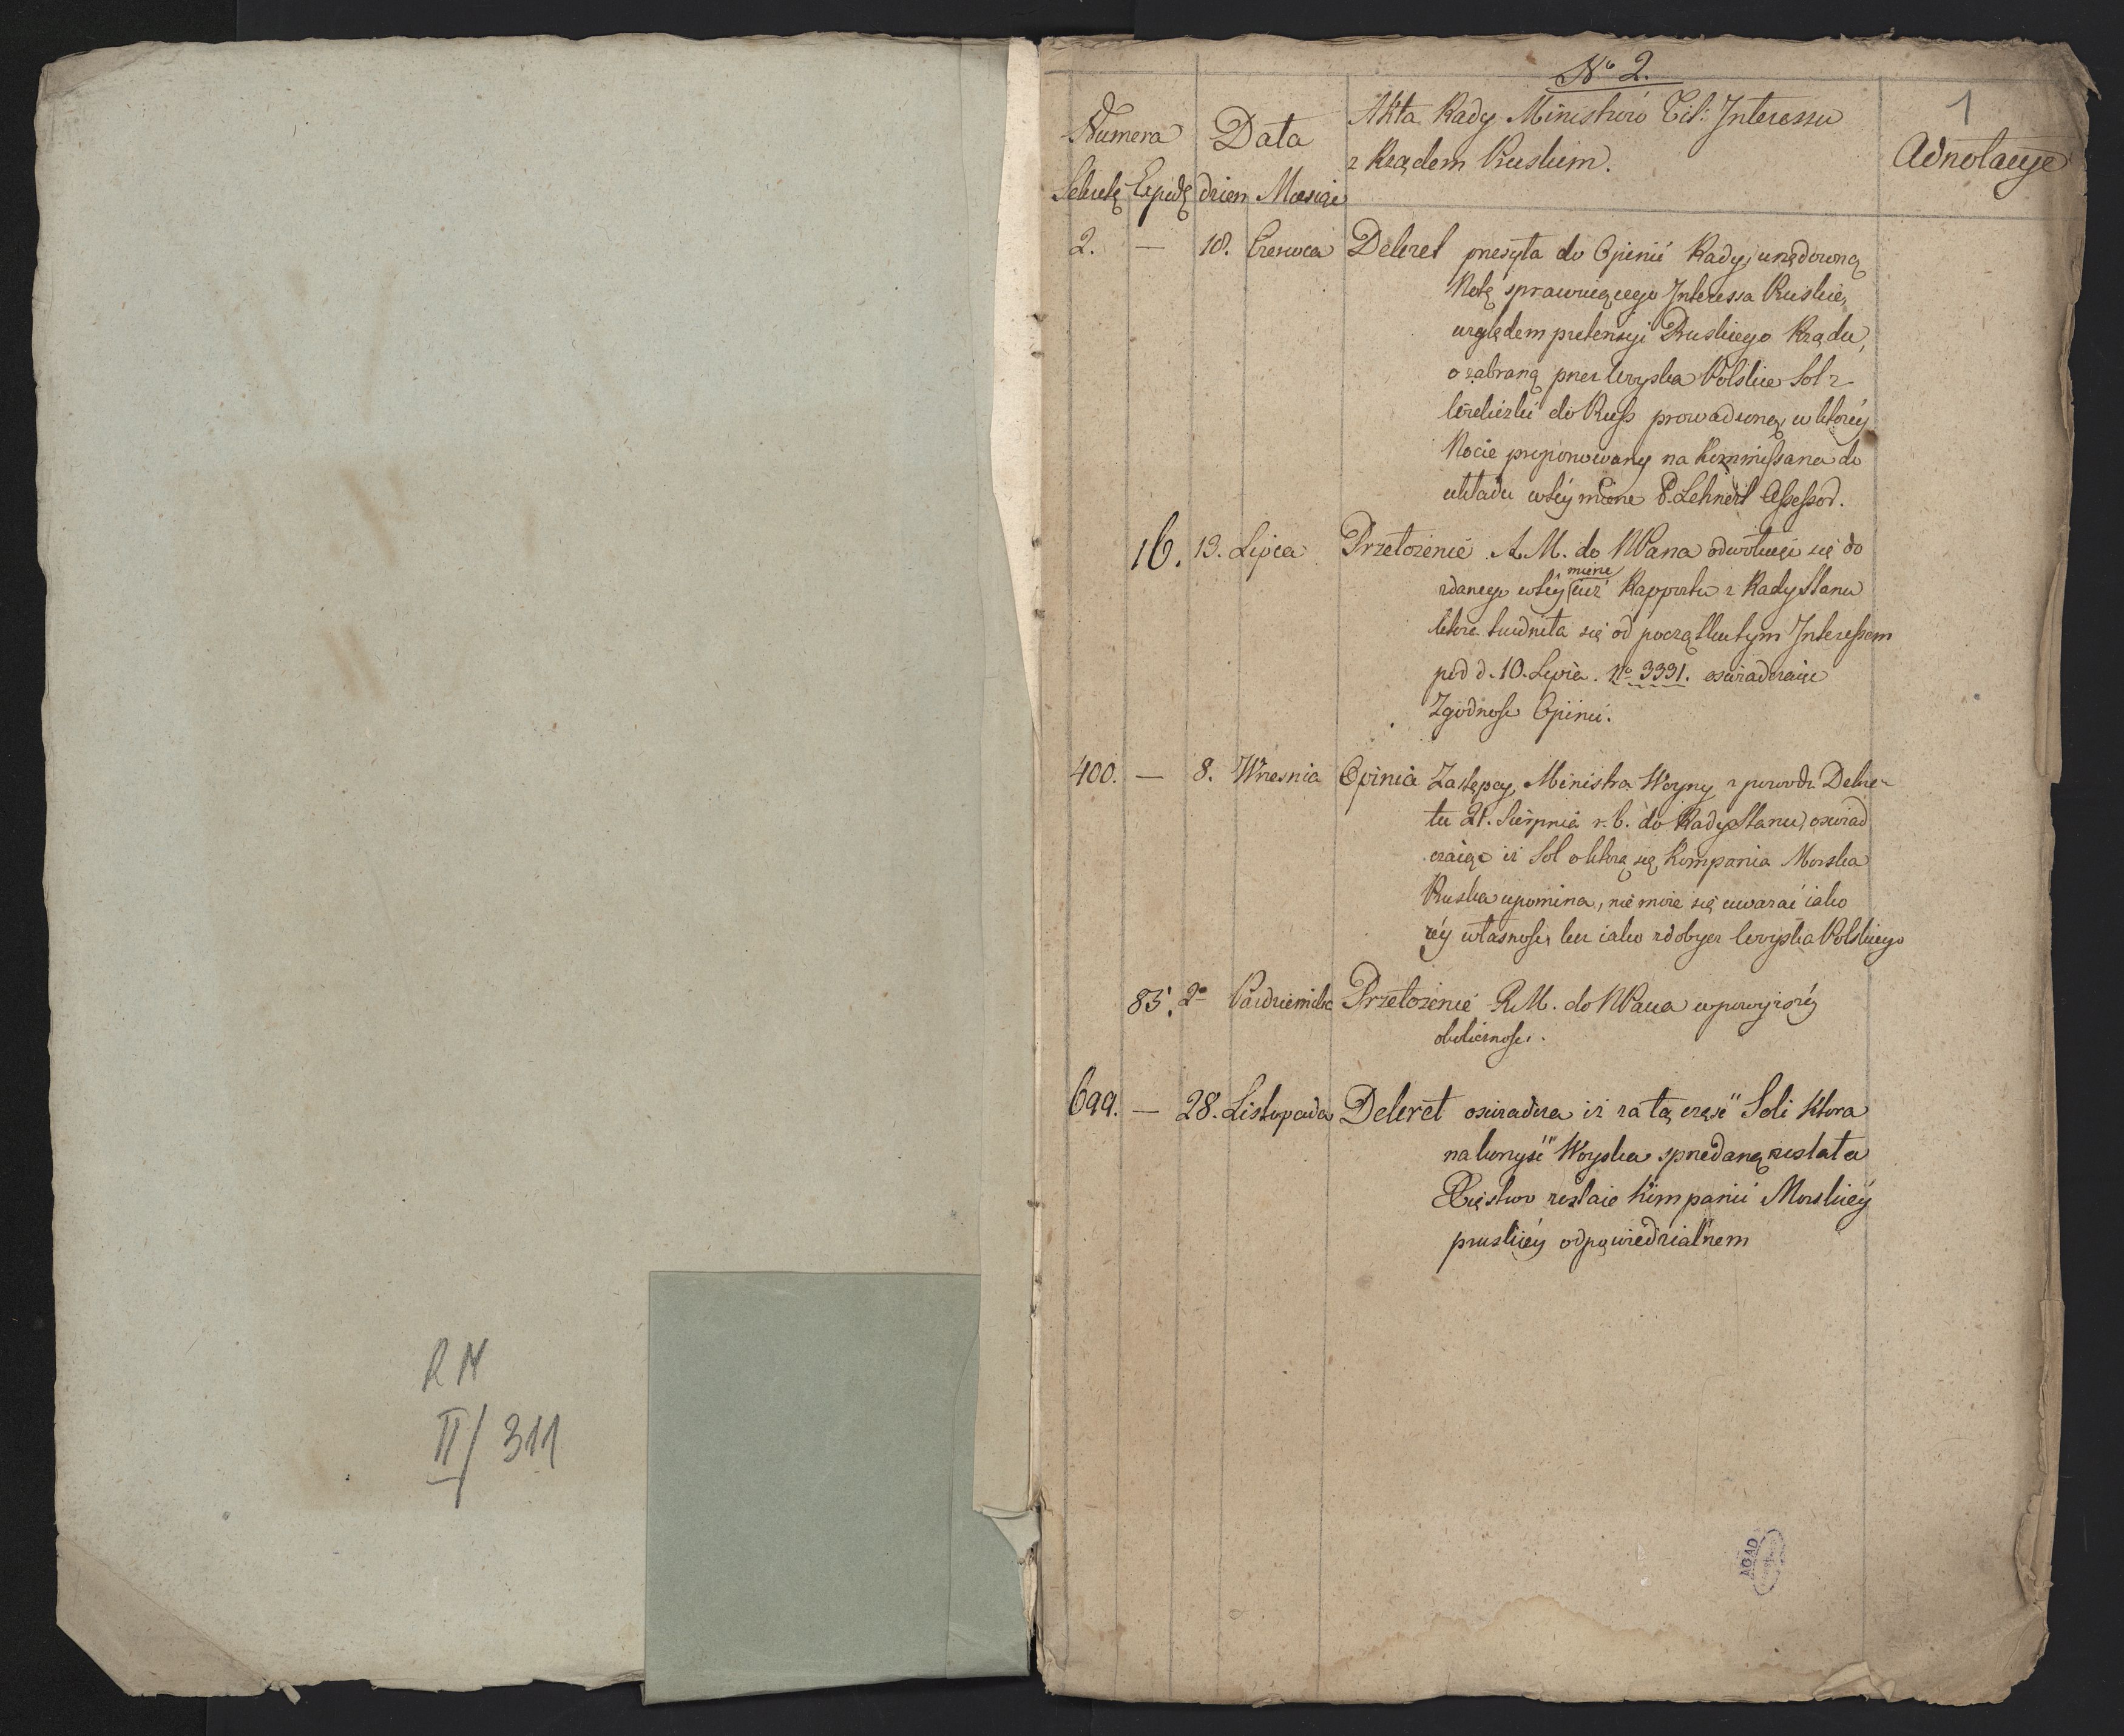 R M
II/311
No 2.
1
Numera
Data
Akta Rady Ministrów Tit: Interessu
z Rządem Pruskim.
Adnotacye
dzień Miesiąc
2. — 18. Czerwca Dekret przesyła do Opinii Rady, urzędowną
Notę sprawuiącego Interessa Pruskie,
względem pretensyi Pruskiego Rządu,
o zabraną przez Woyska Polskie Sol z
Wieliczki do Pruss prowadzoną, w ktoréy
Nocie proponowany na Kommissarza do
układu w téy mierze P. Lehnert Assessor.
16. 19. Lipca Przełożenie R.M. do NPana odwołuiąc się do
zdanego w téy mierze Rapportu z Rady Stanu
która trudniła się od początku tym Interessem
pod d. 10. Lipca. No 3331. oświadczaiąc
Zgodność Opinii.
400. — 8. Wrzesnia Opinia Zastępcy Ministra Woyny z powodu Dekre-
tu 21. Sierpnia r. b. do Rady Stanu, oswiad
czaiąc iż Sol o którą się Kompania Morska
Pruska upomina, nie może się uważać iako
iéy własność, lecz iako zdobycz Woyska Polskiego
85. 2o Pazdziernika Przełożenie R.M. do NPana w powyższéy
okoliczności.
699. — 28. Listopada Dekret oswiadcza iż za tę część Soli ktora
na korzyść Woyska sprzedaną została
Xięstwo zostaie Kompanii Morskiéy
pruskiéy odpowiedzialnem
AGAD